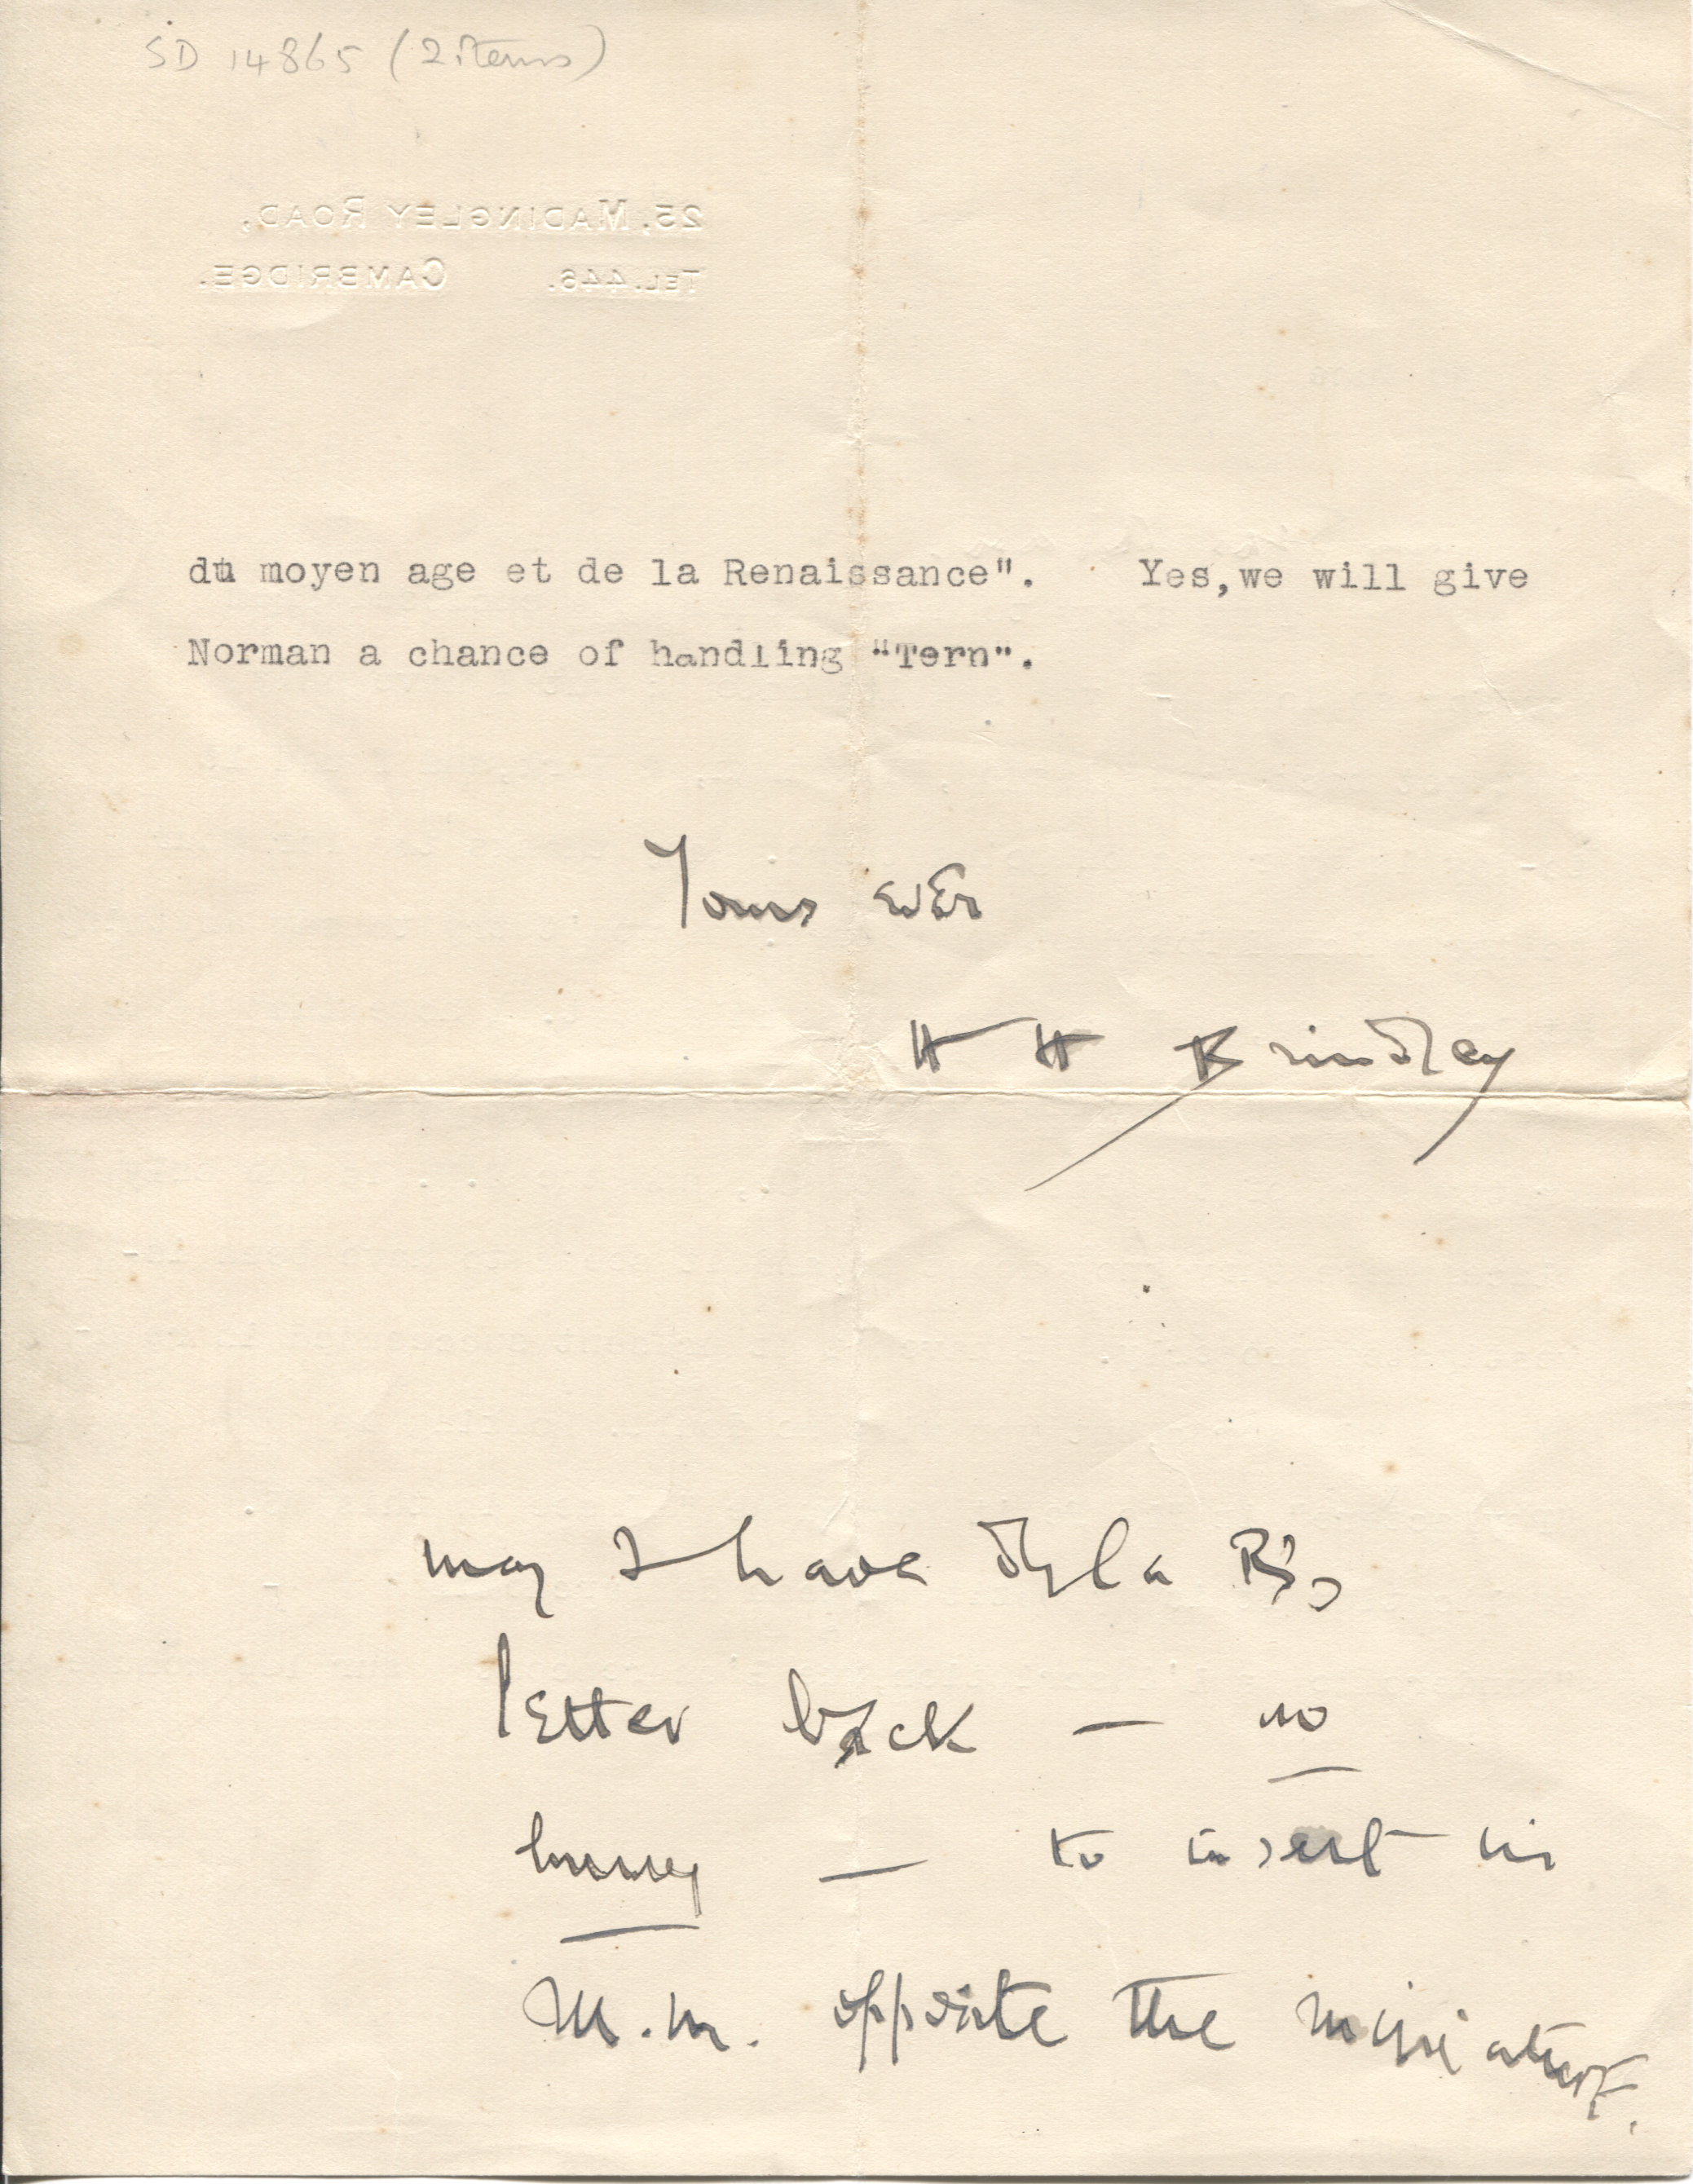 SD 14865 (2 items)
25, MADINGLEY ROAD,
TEL. 446. CAMBRIDGE.
du moyen age et de la Renaissance". Yes,we will give
Norman a chance of handling "Tern".
Yours ever
H H Brindley
may I have la R's
letter back — no
hurry — to insert in
M.M. opposite the miniature.